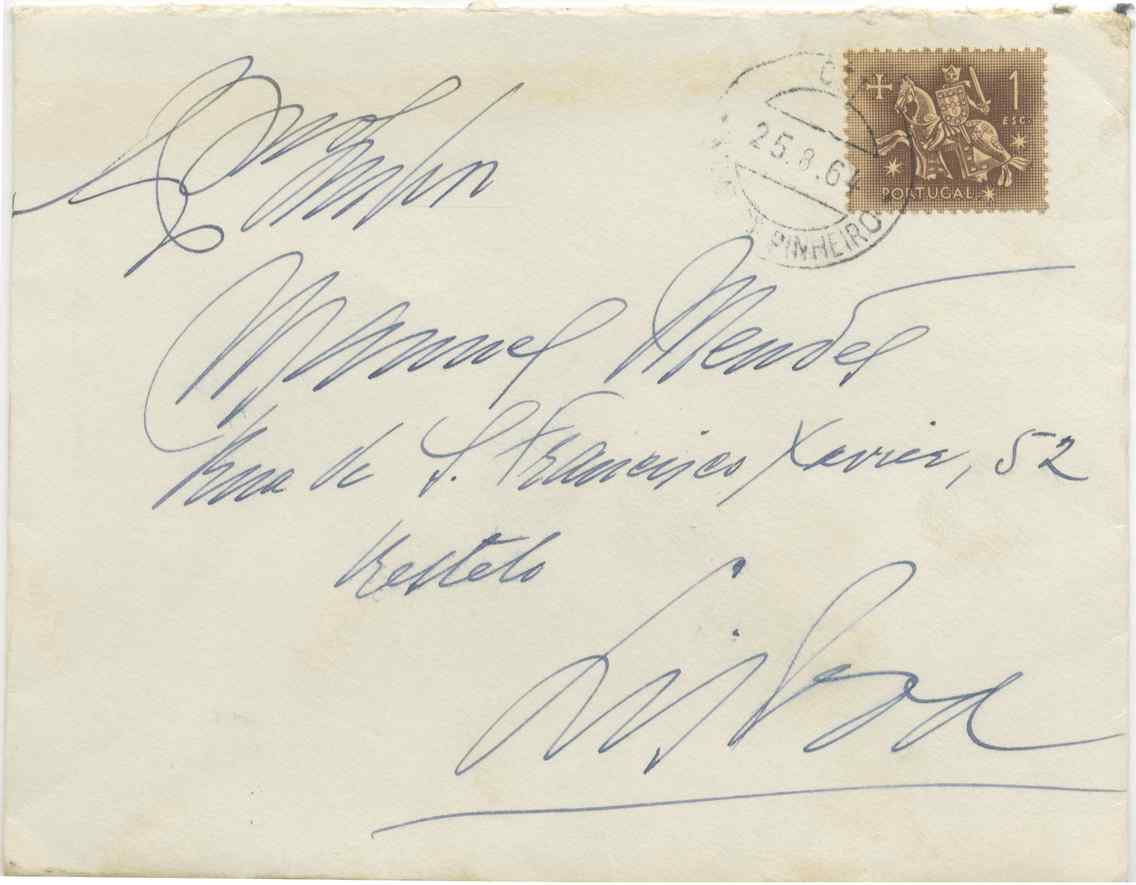 1
ESC.
PORTUGAL
25.8.64
PINHEIRO
Manuel Mendes
Rua de S. Francisco Xavier, 52
Restelo
Lisboa